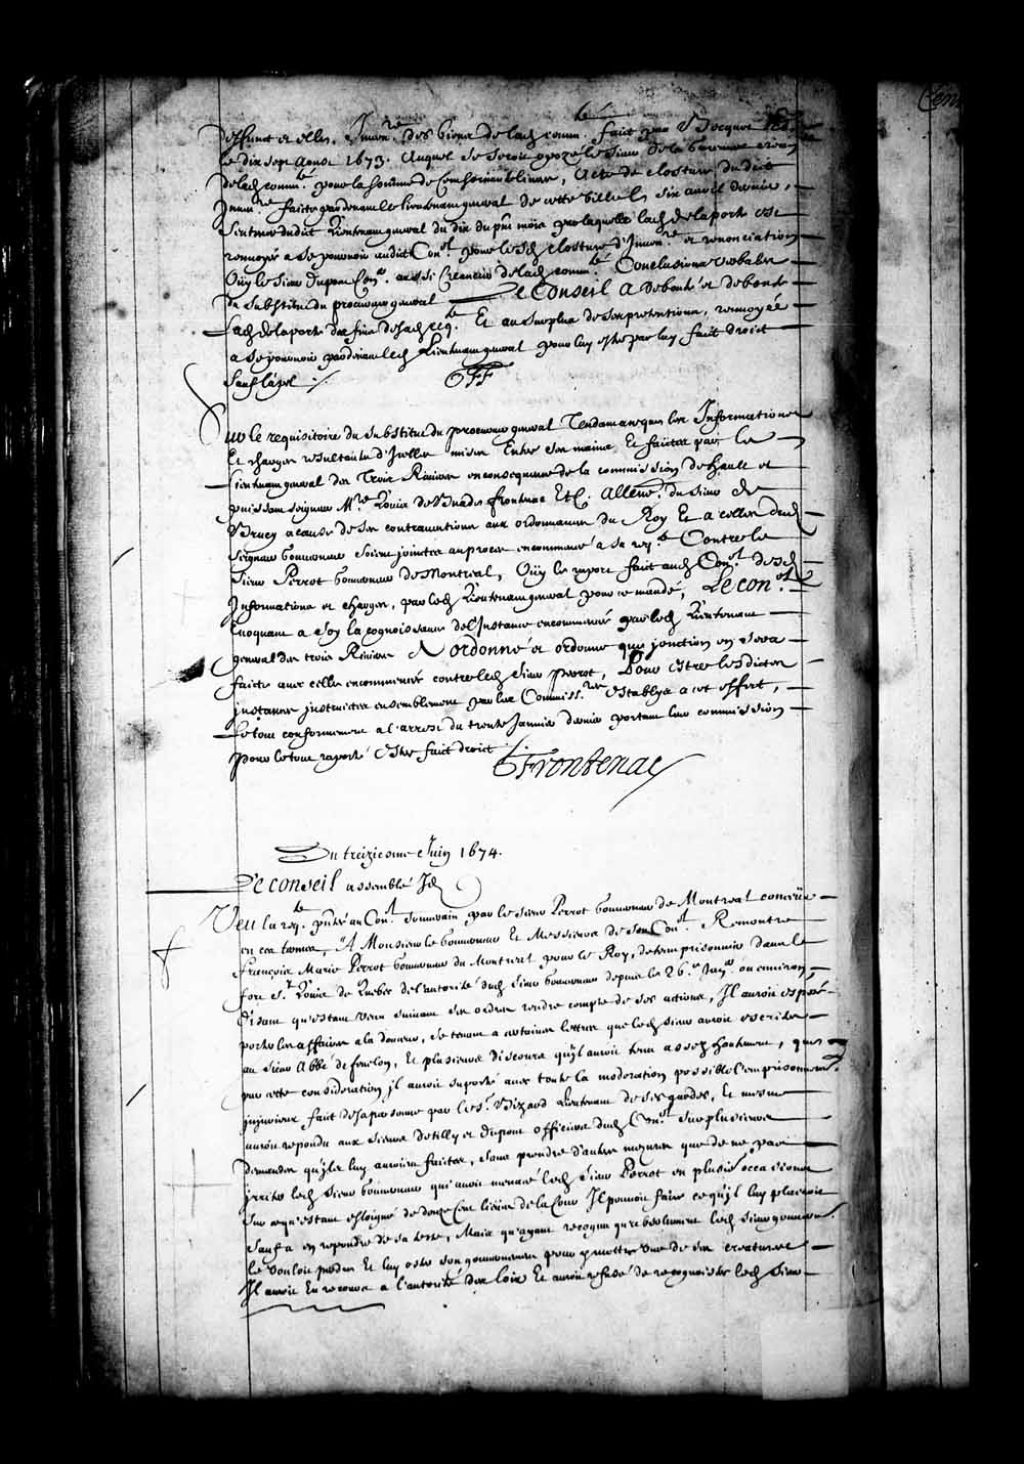 deffunct et elle, Inven.re des biens de lad. comm.té fait par Becquet No.re
le dix sept Aoust 1673. Auquel se seroit opozé le sieur de la
de lad. comm.té pour la somme de , Acte de closture dudit
Inven.re faicte pardevant le Lieutenant general de cette ville le six avril dernier,
Sentence dudict Lieutenant general du dix du pnt mois par laquelle lad. delaporte est
renvoyée a se pourvoir audict Con.el pour lesd. closture d'Inven.re et renonciation
Ouy le sieur Dupont Con.er aussi Creancier de lad. comm.té Conclusions verbales
du substitut du procureur general Le Conseil a debouté et deboute
Lad. delaporte des fins de sad. req.te Et au surplus de ses pretentions, renvoyée
a se pourvoir pardevant led. Lieutenant general pour luy estre par luy faict droict
sauf l'apel ./.
FF
Sur le requisitoire du substitut du procureur general Tendant a ce que les Informations
Et charges resultantes d'Icelles mises Entre ses mains Et faictes par le
Lieutenant general des Trois Rivieres en consequence de la commission de hault et
puissant seigneur M.re Louis de Buade frontenac Etc. allenc.re du sieur de
Brucy a cause de ses contraventions aux ordonnances du Roy Et a celles dud.
seigneur Gouverneur soient jointes au proces encommencé a sa req.te Contre le
sieur Perrot Gouverneur de Montreal, Ouy le raport faict aud. Con.el desd.
Informations et charges, par led. Lieutenant general pour ce mandé, Le con.el
Evoquant a soy la cognoissance de l'Instance encommencée par led. Lieutenant
general des trois Rivieres A ordonné et ordonne que jonction en sera
faicte avec celle encommencée contre led. sieur perrot, Pour estre lesdictes
instances instruictes ensemblement par les Commiss.res establys a cet effect,
Le tout conformement a l'arrest du trente Janvier dernier portant leur commission
pour le tout raporté estre faict droict ./.
Frontenac
Du treiziesme Juin 1674.
Le conseil assemblé
Veu la req.te pntée au Con.el Souverain par le sieur Perrot Gouverneur de Montreal conceüe
en ces termes, A Monsieur le Gouverneur Et Messieurs de son Con.el Remontre
François Marie Perrot Gouverneur du Montreal pour le Roy, detenu prisonnier dans le
fort S.t Louis de Quebec de l'autorité dud. sieur Gouverneur depuis le 26.e Janv.er ou environ,
Disant qu'estant venu suivant ses ordres rendre compte de ses actions, Il auroit esperé
porter les affaires a la douceur, se tenant a certaines lettres que led. sieur avoit escrites
au sieur Abbé de fenelon, Et plusieurs discours qu'il auroit tenu assez hautement, que
par cette consideration il auroit suporté avec toute la moderation possible l'emprisonnement
injurieux faict de sa personne par le S.r Bizard Lieutenant de ses gardes, Et mesme
auroit repondu aux sieurs de tilly et dupont officiers dud. Con.el sur plusieurs
demandes qu'ils luy auroient faictes, sans prendre d'autres mesures que de ne pas
irriter led. sieur Gouverneur qui avoit menacé led. sieur Perrot en plusieurs occasions
sur ce qu'estant esloigné de douze cent lieües de la Cour Il pouvoit faire ce qu'il luy plairoit
sauf a en repondre de sa teste, Mais qu'ayant recognu que visiblement led. sieur gouverneur
le vouloit perdre Et luy oster son gouvernement pour y mettre une de ses creatures
Il auroit Eu recours a l'autorité des loix Et auroit refusé de recognoistre led. sieur